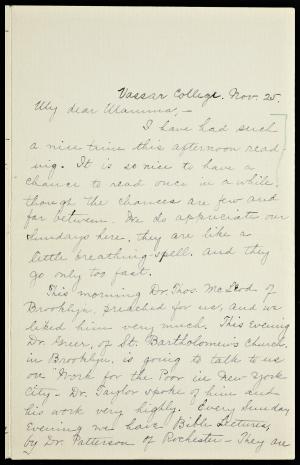 Vassar College. Nov. 25.
My dear Mamma,-
I have had such
a nice time this afternoon read-
ing. It is so nice to have a
chance to read once in a while,
though the chances are few and
far between. We do appreciate our
Sundays here, they are like a
little breathing-spell, and they
go only too fast.
This morning Dr. Thos. McLeod of
Brooklyn, preached for us, and we
liked him very much. This Evening
Dr. Greer, of St. Bartholomew's Church,
in Brooklyn, is going to talk to us
on "Work for the Poor in New York
City - Dr. Taylor spoke of him and
his work very highly. Every Sunday
Evening we have Bible Lectures,
by Dr. Patterson of Rochester - They are